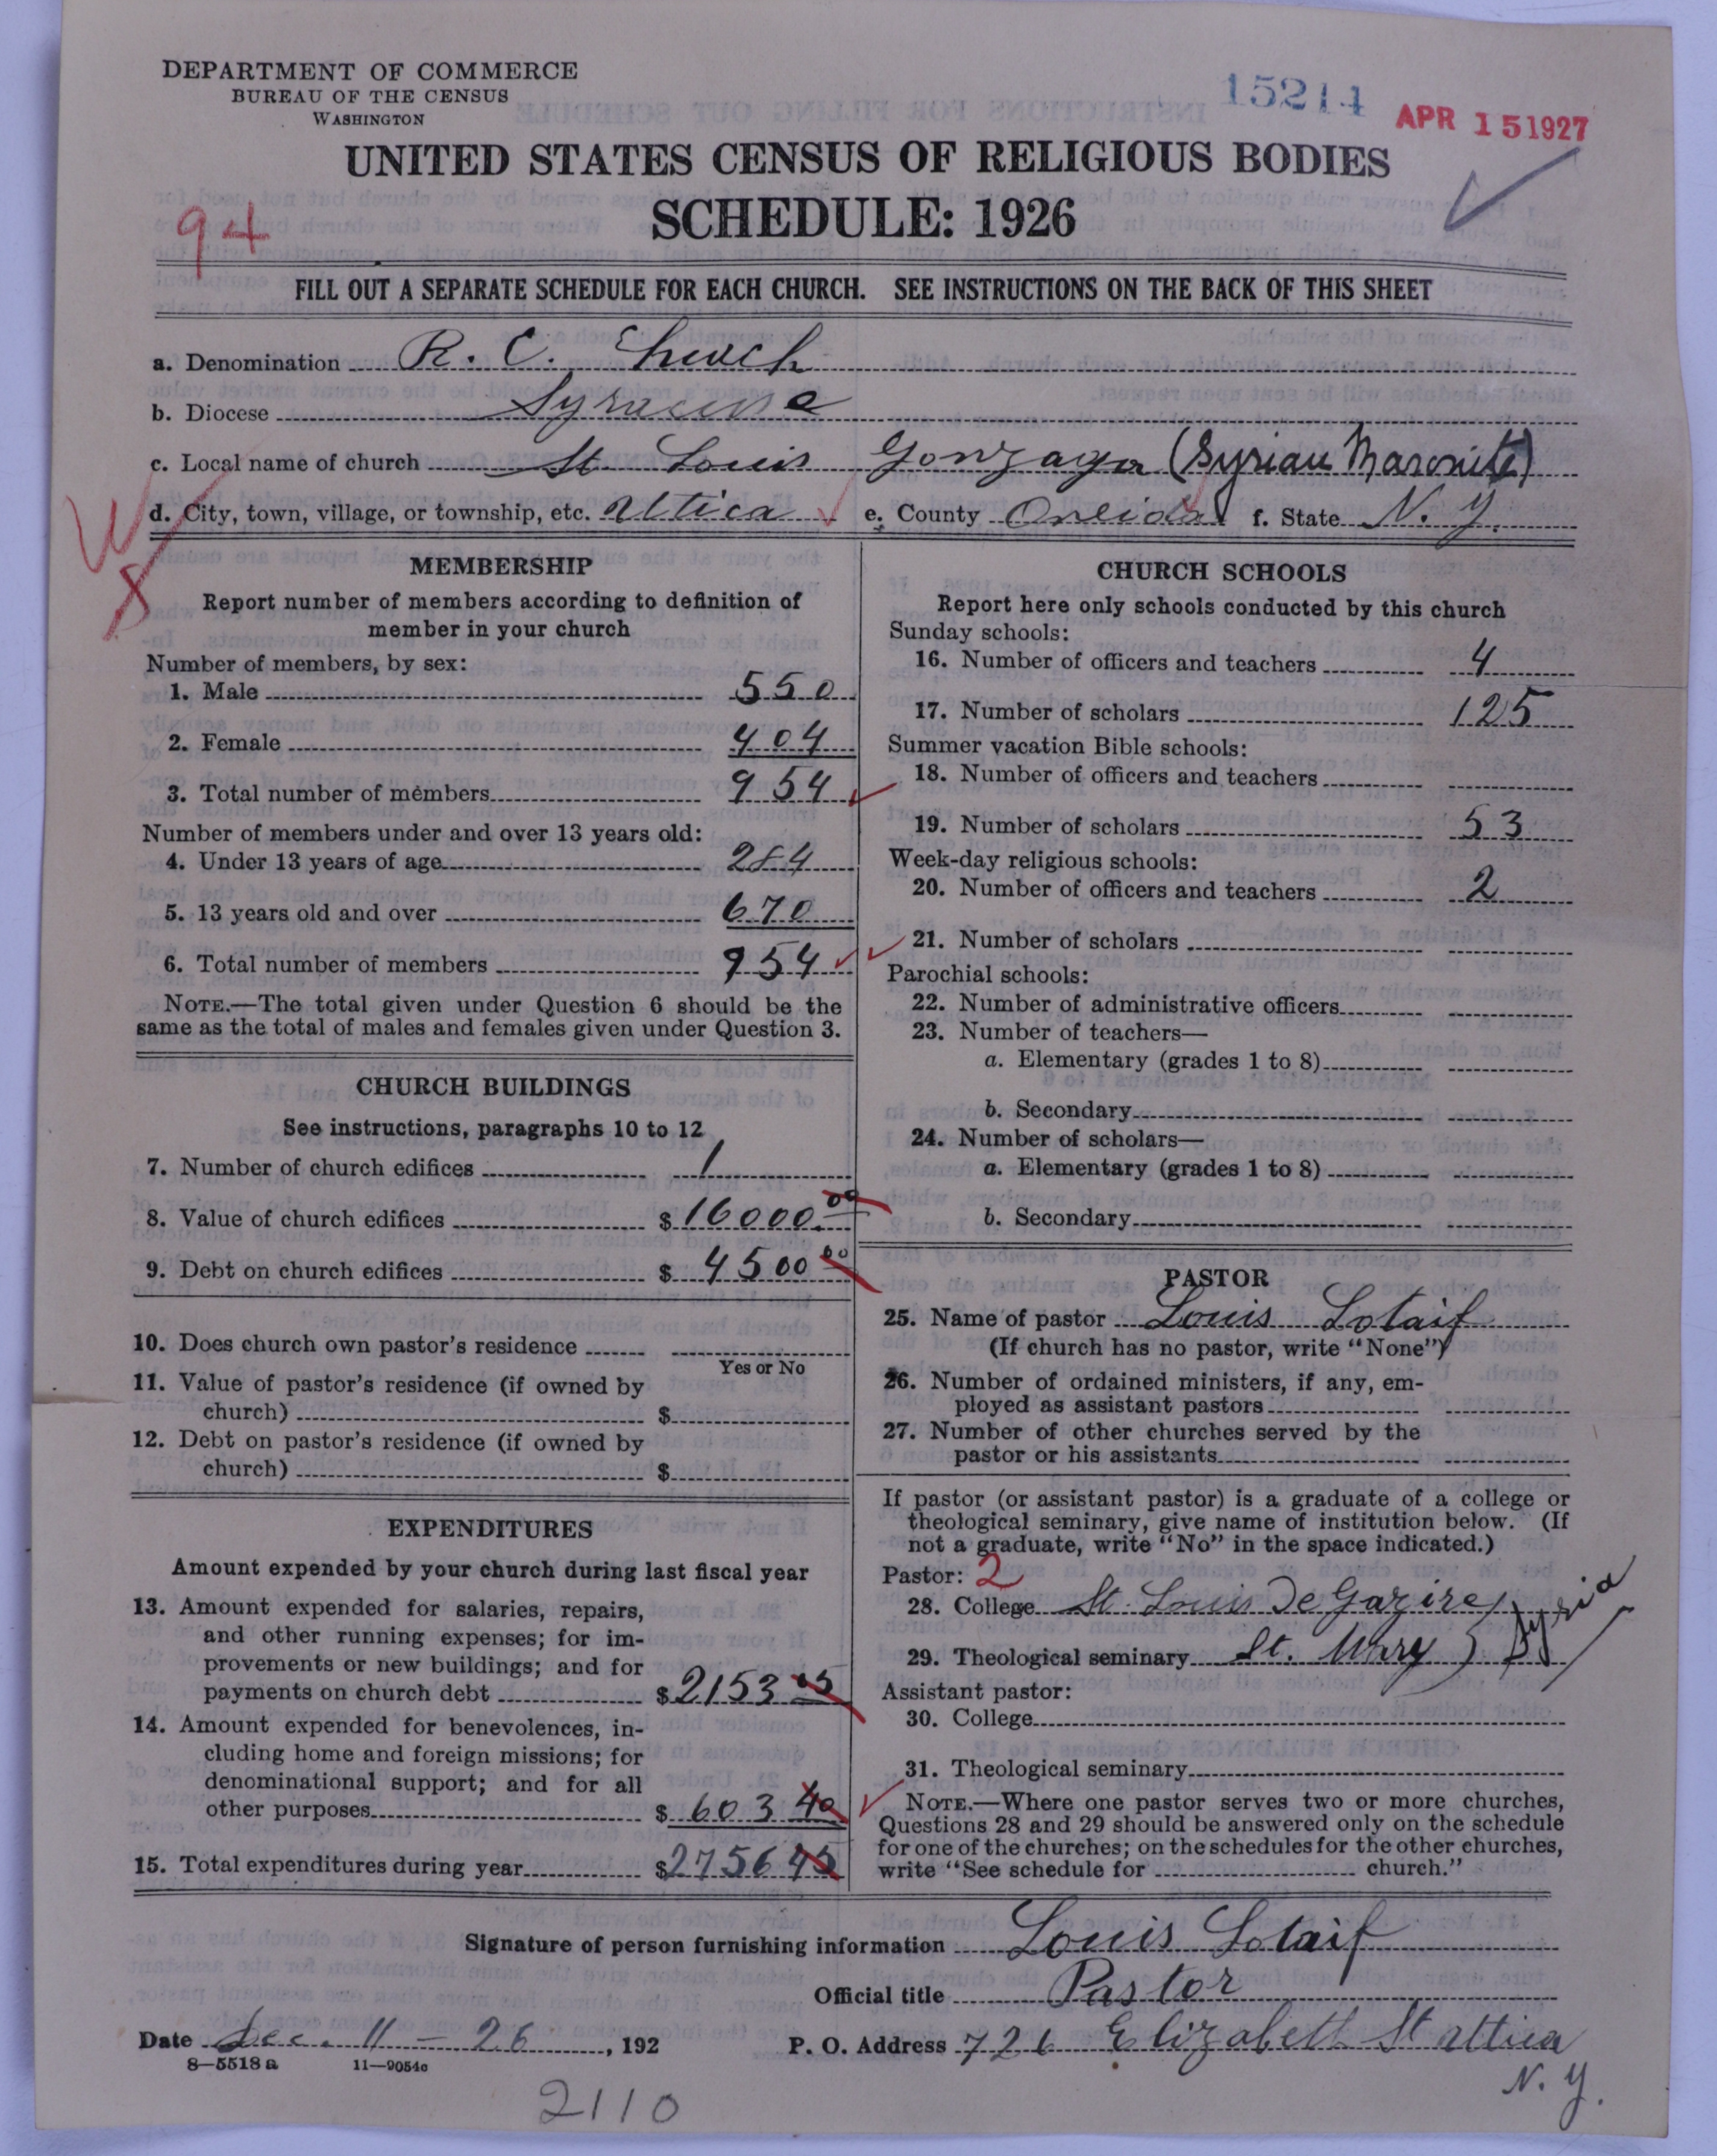 DEPARTMENT OF COMMERCE
BUREAU OF THE CENSUS
WASHINGTON
15214
APR 15 1927
UNITED STATES CENSUS OF RELIGIOUS BODIES
SCHEDULE: 1926
94
FILL OUT A SEPARATE SCHEDULE FOR EACH CHURCH. SEE INSTRUCTIONS ON THE BACK OF THIS SHEET
a. Denomination R. C. Church
b. Diocese Syracuse
c. Local name of church St Louis Gonzaga (Syrian Maronite)
d. City, town, village, or township, etc. Uttica e. County Oneida f. State N. Y.
MEMBERSHIP
Report number of members according to definition of
member in your church
Number of members, by sex:
1. Male 550
2. Female 404
3. Total number of members 954
Number of members under and over 13 years old:
4. Under 13 years of age 284
5. 13 years old and over 670
6. Total number of members 954
NOTE.—The total given under Question 6 should be the
same as the total of males and females given under Question 3.
CHURCH BUILDINGS
See instructions, paragraphs 10 to 12
7. Number of church edifices 1
8. Value of church edifices $ 16000.00
9. Debt on church edifices $ 4500 00
10. Does church own pastor's residence
Yes or No
11. Value of pastor's residence (if owned by
church) $
12. Debt on pastor's residence (if owned by
church) $
EXPENDITURES
Amount expended by your church during last fiscal year
13. Amount expended for salaries, repairs,
and other running expenses; for im-
provements or new buildings; and for
payments on church debt $ 2153 05
14. Amount expended for benevolences, in-
cluding home and foreign missions; for
denominational support; and for all
other purposes $ 603 40
15. Total expenditures during year $ 2756 45
CHURCH SCHOOLS
Report here only schools conducted by this church
Sunday schools:
16. Number of officers and teachers 4
17. Number of scholars 125
Summer vacation Bible schools:
18. Number of officers and teachers
19. Number of scholars 53
Week-day religious schools:
20. Number of officers and teachers 2
21. Number of scholars
Parochial schools:
22. Number of administrative officers
23. Number of teachers—
a. Elementary (grades 1 to 8)
b. Secondary
24. Number of scholars—
a. Elementary (grades 1 to 8)
b. Secondary
PASTOR
25. Name of pastor Louis Lotaif
(If church has no pastor, write "None")
26. Number of ordained ministers, if any, em-
ployed as assistant pastors
27. Number of other churches served by the
pastor or his assistants
If pastor (or assistant pastor) is a graduate of a college or
theological seminary, give name of institution below. (If
not a graduate, write "No" in the space indicated.)
Pastor: 2
28. College St. Louis De Gazire
29. Theological seminary St. Mary } Syria
Assistant pastor:
30. College
31. Theological seminary
NOTE.—Where one pastor serves two or more churches,
Questions 28 and 29 should be answered only on the schedule
for one of the churches; on the schedules for the other churches,
write "See schedule for church."
Signature of person furnishing information Louis Lotaif
Official title Pastor
Date Dec. 11 - 26, 192 P. O. Address 726 Elizabeth St Uttica
N. Y.
8—5518 a 11—9054c
2110